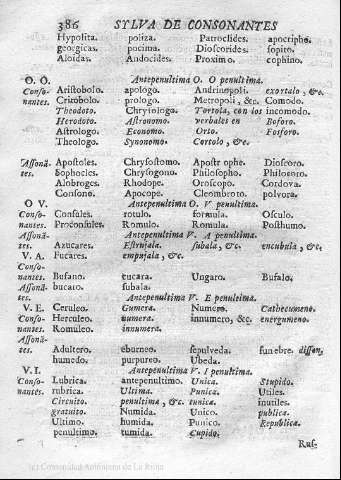 386 SYLVA DE CONSONANTES
Hypolita. poliza. Patroclides. apocripho.
georgicas. pocima. Dioscorides. sopito.
Aloidas. Andocides. Proximo. cophino.
O. O. Antepenultima O. O penultima.
Conso- Aristobolo. apologo. Andrinopoli. exortalo, &c.
nantes. Cristobolo. prologo. Metropoli, &c. Comodo.
Theodoto. Chrysologo. Tortola, con los incomodo.
Herodoto. Astronomo. verbales en Bosforo.
Astrologo. Economo. Orlo. Fosforo.
Theologo. Synonomo. Cortolo, &c.
Assoná- Apostoles. Chrysostomo. Apostrophe. Dioscoro.
tes. Sophocles. Chrysogono. Philosopho. Philosoro.
Alobroges. Rhodope. Oroscopo. Cordova.
Consono. Apocope. Cleombroto. polvora.
O V. Antepenultima O. V penultima.
Conso- Consules. rotulo. formula. Osculo.
nantes. Proconsules. Romulo. Romula. Posthumo.
Assoná- Antepenultima V. A penultima.
tes. Azucares. Estrujala. subala, &c. encubala, &c.
V. A. Fucares. empujala, &c.
Conso-
nantes. Bufano. cucara. Ungaro. Bufalo.
Assoná- bucaro. subala.
tes. Antepenultima V. E penultima.
V. E. Ceruleo. Eumera. Numero. Cathecumeno.
Conso- Herculeo. numera. innumero, &c. energumeno.
nantes. Romuleo. innumera.
Assoná-
tes. Adultero. eburneo. sepulveda. funebre. disson,
humedo. purpureo. Ubeda.
V. I. Antepenultima V. I penultima.
Conso- Lubrica. antepenultimo. Unica. Stupido.
nantes. rubrica. Ultima. Punica. Utiles.
Circuito. penultima, &c. tunica. inutiles.
gratuito. Numida. Unico. publica.
Ultimo. humida. Punico. Republica.
penultimo. tumida. Cupido.
Rus-
(c) Comunidad Autónoma de La Rioja